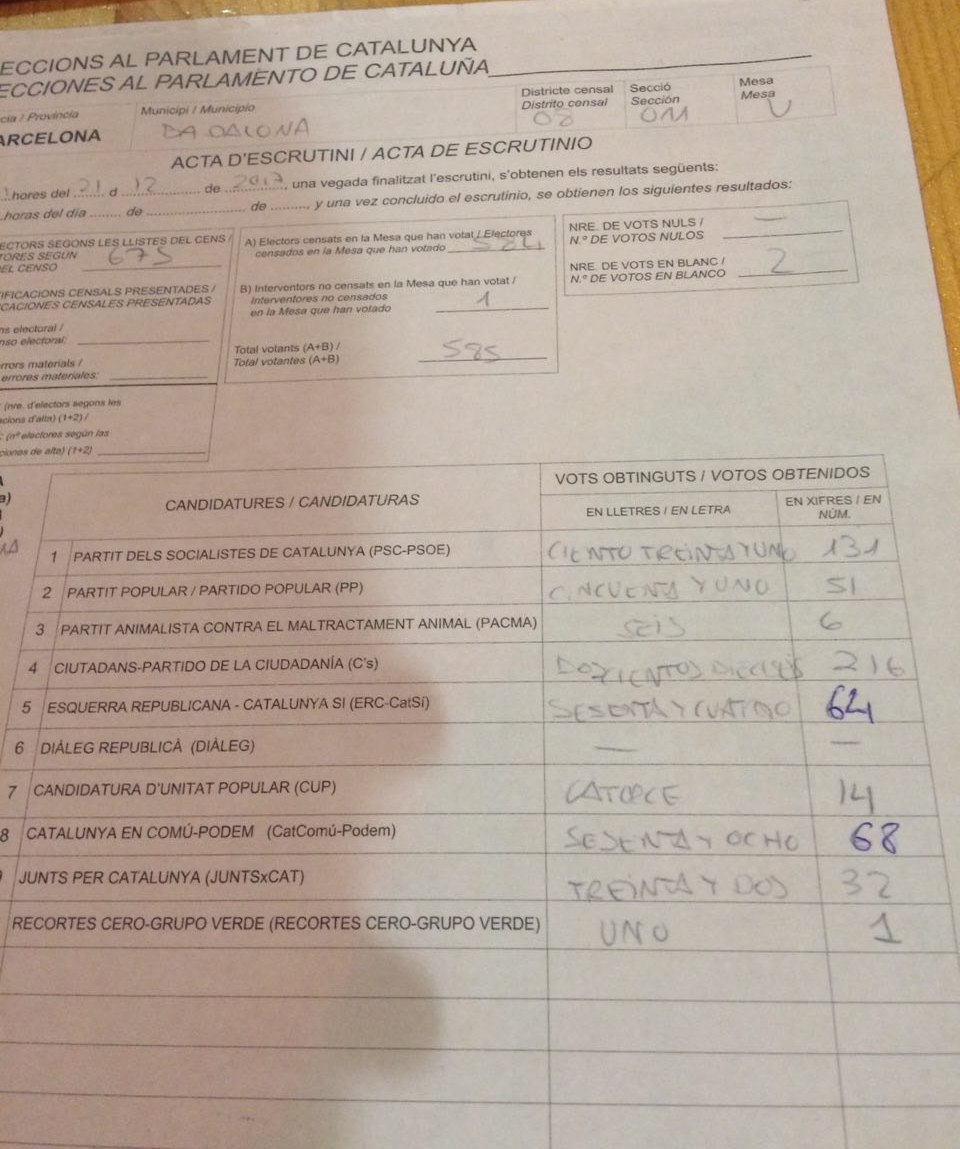 ECCIONS AL PARLAMENT DE CATALUNYA
ECCIONES AL PARLAMENTO DE CATALUÑA
cia / Provincia
ARCELONA
Municipi / Municipio
BADALONA
Districte censal
Distrito censal
02
Secció
Sección
011
Mesa
Mesa
U
ACTA D'ESCRUTINI / ACTA DE ESCRUTINIO
hores del 21 d 12 de 2017, una vegada finalitzat l'escrutini, s'obtenen els resultats següents:
horas del día ........ de ........ de ........, y una vez concluido el escrutinio, se obtienen los siguientes resultados:
ECTORS SEGONS LES LLISTES DEL CENS /
TORES SEGÚN
EL CENSO
675
IFICACIONS CENSALS PRESENTADES /
CACIONES CENSALES PRESENTADAS
ns electoral /
nso electoral:
rrors materials /
errores materiales:
(nre. d'electors segons les
cions d'alta) (1+2) /
(nº electores según las
ciones de alta) (1+2)
A) Electors censats en la Mesa que han votat / Electores
censados en la Mesa que han votado
584
B) Interventors no censats en la Mesa que han votat /
Interventores no censados
en la Mesa que han votado
1
Total votants (A+B) /
Total votantes (A+B)
585
NRE. DE VOTS NULS /
N.º DE VOTOS NULOS
—
NRE. DE VOTS EN BLANC /
N.º DE VOTOS EN BLANCO
2
CANDIDATURES / CANDIDATURAS
VOTS OBTINGUTS / VOTOS OBTENIDOS
EN LLETRES / EN LETRA
EN XIFRES / EN
NÚM.
1 PARTIT DELS SOCIALISTES DE CATALUNYA (PSC-PSOE) CIENTO TREINTA Y UNO 131
2 PARTIT POPULAR / PARTIDO POPULAR (PP) CINCUENTA Y UNO 51
3 PARTIT ANIMALISTA CONTRA EL MALTRACTAMENT ANIMAL (PACMA) SEIS 6
4 CIUTADANS-PARTIDO DE LA CIUDADANÍA (C's) DOSCIENTOS DIECISEIS 216
5 ESQUERRA REPUBLICANA - CATALUNYA SI (ERC-CatSí) SESENTA Y CUATRO 64
6 DIÀLEG REPUBLICÀ (DIÀLEG) — —
7 CANDIDATURA D'UNITAT POPULAR (CUP) CATORCE 14
8 CATALUNYA EN COMÚ-PODEM (CatComú-Podem) SESENTA Y OCHO 68
JUNTS PER CATALUNYA (JUNTSxCAT) TREINTA Y DOS 32
RECORTES CERO-GRUPO VERDE (RECORTES CERO-GRUPO VERDE) UNO 1